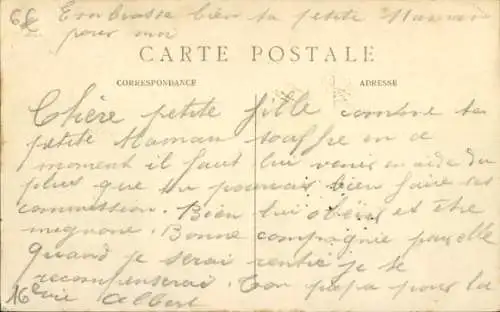 Embrasse bien ta petite Maman
pour moi
CARTE POSTALE
CORRESPONDANCE
ADRESSE
Chère petite fille combre ta
petite Maman souffre en ce
moment il faut lui venir en aide du
plus que tu pourrais bien faire ses
commission. Bien lui obéir et être
mignone. Bonne compagnie pour elle
quand je serai rentré je te
recompenserai. Ton papa pour la
16eme Albert